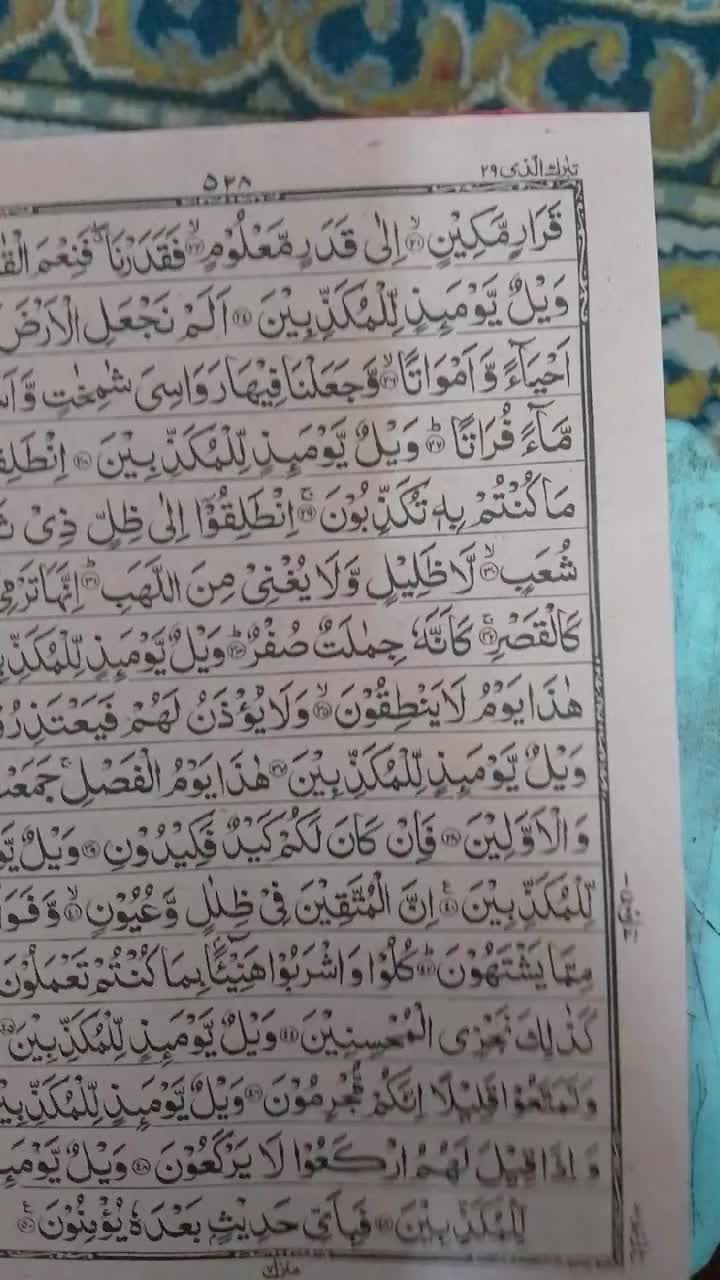 تبٰرک الّذی ٢٩
٥٢٨
قَرَارٍ مَّكِيْنٍ ۙ﴿٢١﴾ اِلٰى قَدَرٍ مَّعْلُوْمٍ ۙ﴿٢٢﴾ فَقَدَرْنَا ۖ فَنِعْمَ
وَيْلٌ يَّوْمَىِٕذٍ لِّلْمُكَذِّبِيْنَ ﴿٢٤﴾ اَلَمْ نَجْعَلِ الْاَرْضَ
اَحْيَآءً وَّ اَمْوَاتًا ۙ﴿٢٦﴾ وَّ جَعَلْنَا فِيْهَا رَوَاسِيَ شٰمِخٰتٍ
مَّآءً فُرَاتًا ؕ﴿٢٧﴾ وَيْلٌ يَّوْمَىِٕذٍ لِّلْمُكَذِّبِيْنَ ﴿٢٨﴾
مَا كُنْتُمْ بِهٖ تُكَذِّبُوْنَ ۚ﴿٢٩﴾ اِنْطَلِقُوْۤا اِلٰى ظِلٍّ ذِيْ
شُعَبٍ ۙ﴿٣٠﴾ لَّا ظَلِيْلٍ وَّ لَا يُغْنِيْ مِنَ اللَّهَبِ ؕ﴿٣١﴾ اِنَّهَا تَرْمِيْ
كَالْقَصْرِ ۚ﴿٣٢﴾ كَاَنَّهٗ جِمٰلَتٌ صُفْرٌ ؕ﴿٣٣﴾ وَيْلٌ يَّوْمَىِٕذٍ
هٰذَا يَوْمُ لَا يَنْطِقُوْنَ ۙ﴿٣٥﴾ وَ لَا يُؤْذَنُ لَهُمْ
وَيْلٌ يَّوْمَىِٕذٍ لِّلْمُكَذِّبِيْنَ ﴿٣٧﴾ هٰذَا يَوْمُ الْفَصْلِ ۚ
وَ الْاَوَّلِيْنَ ﴿٣٨﴾ فَاِنْ كَانَ لَكُمْ كَيْدٌ فَكِيْدُوْنِ ﴿٣٩﴾ وَيْلٌ
لِّلْمُكَذِّبِيْنَ ﴿٤٠﴾ اِنَّ الْمُتَّقِيْنَ فِيْ ظِلٰلٍ وَّ عُيُوْنٍ ۙ﴿٤١﴾
مِمَّا يَشْتَهُوْنَ ؕ﴿٤٢﴾ كُلُوْا وَ اشْرَبُوْا هَنِيْٓئًۢا بِمَا كُنْتُمْ تَعْمَلُوْنَ
كَذٰلِكَ نَجْزِي الْمُحْسِنِيْنَ ﴿٤٤﴾ وَيْلٌ يَّوْمَىِٕذٍ لِّلْمُكَذِّبِيْنَ ﴿٤٥﴾
وَ تَمَتَّعُوْا قَلِيْلًا اِنَّكُمْ مُّجْرِمُوْنَ ﴿٤٦﴾ وَيْلٌ يَّوْمَىِٕذٍ
وَ اِذَا قِيْلَ لَهُمُ ارْكَعُوْا لَا يَرْكَعُوْنَ ﴿٤٨﴾ وَيْلٌ
لِّلْمُكَذِّبِيْنَ ﴿٤٩﴾ فَبِاَيِّ حَدِيْثٍۭ بَعْدَهٗ يُؤْمِنُوْنَ ﴿٥٠﴾